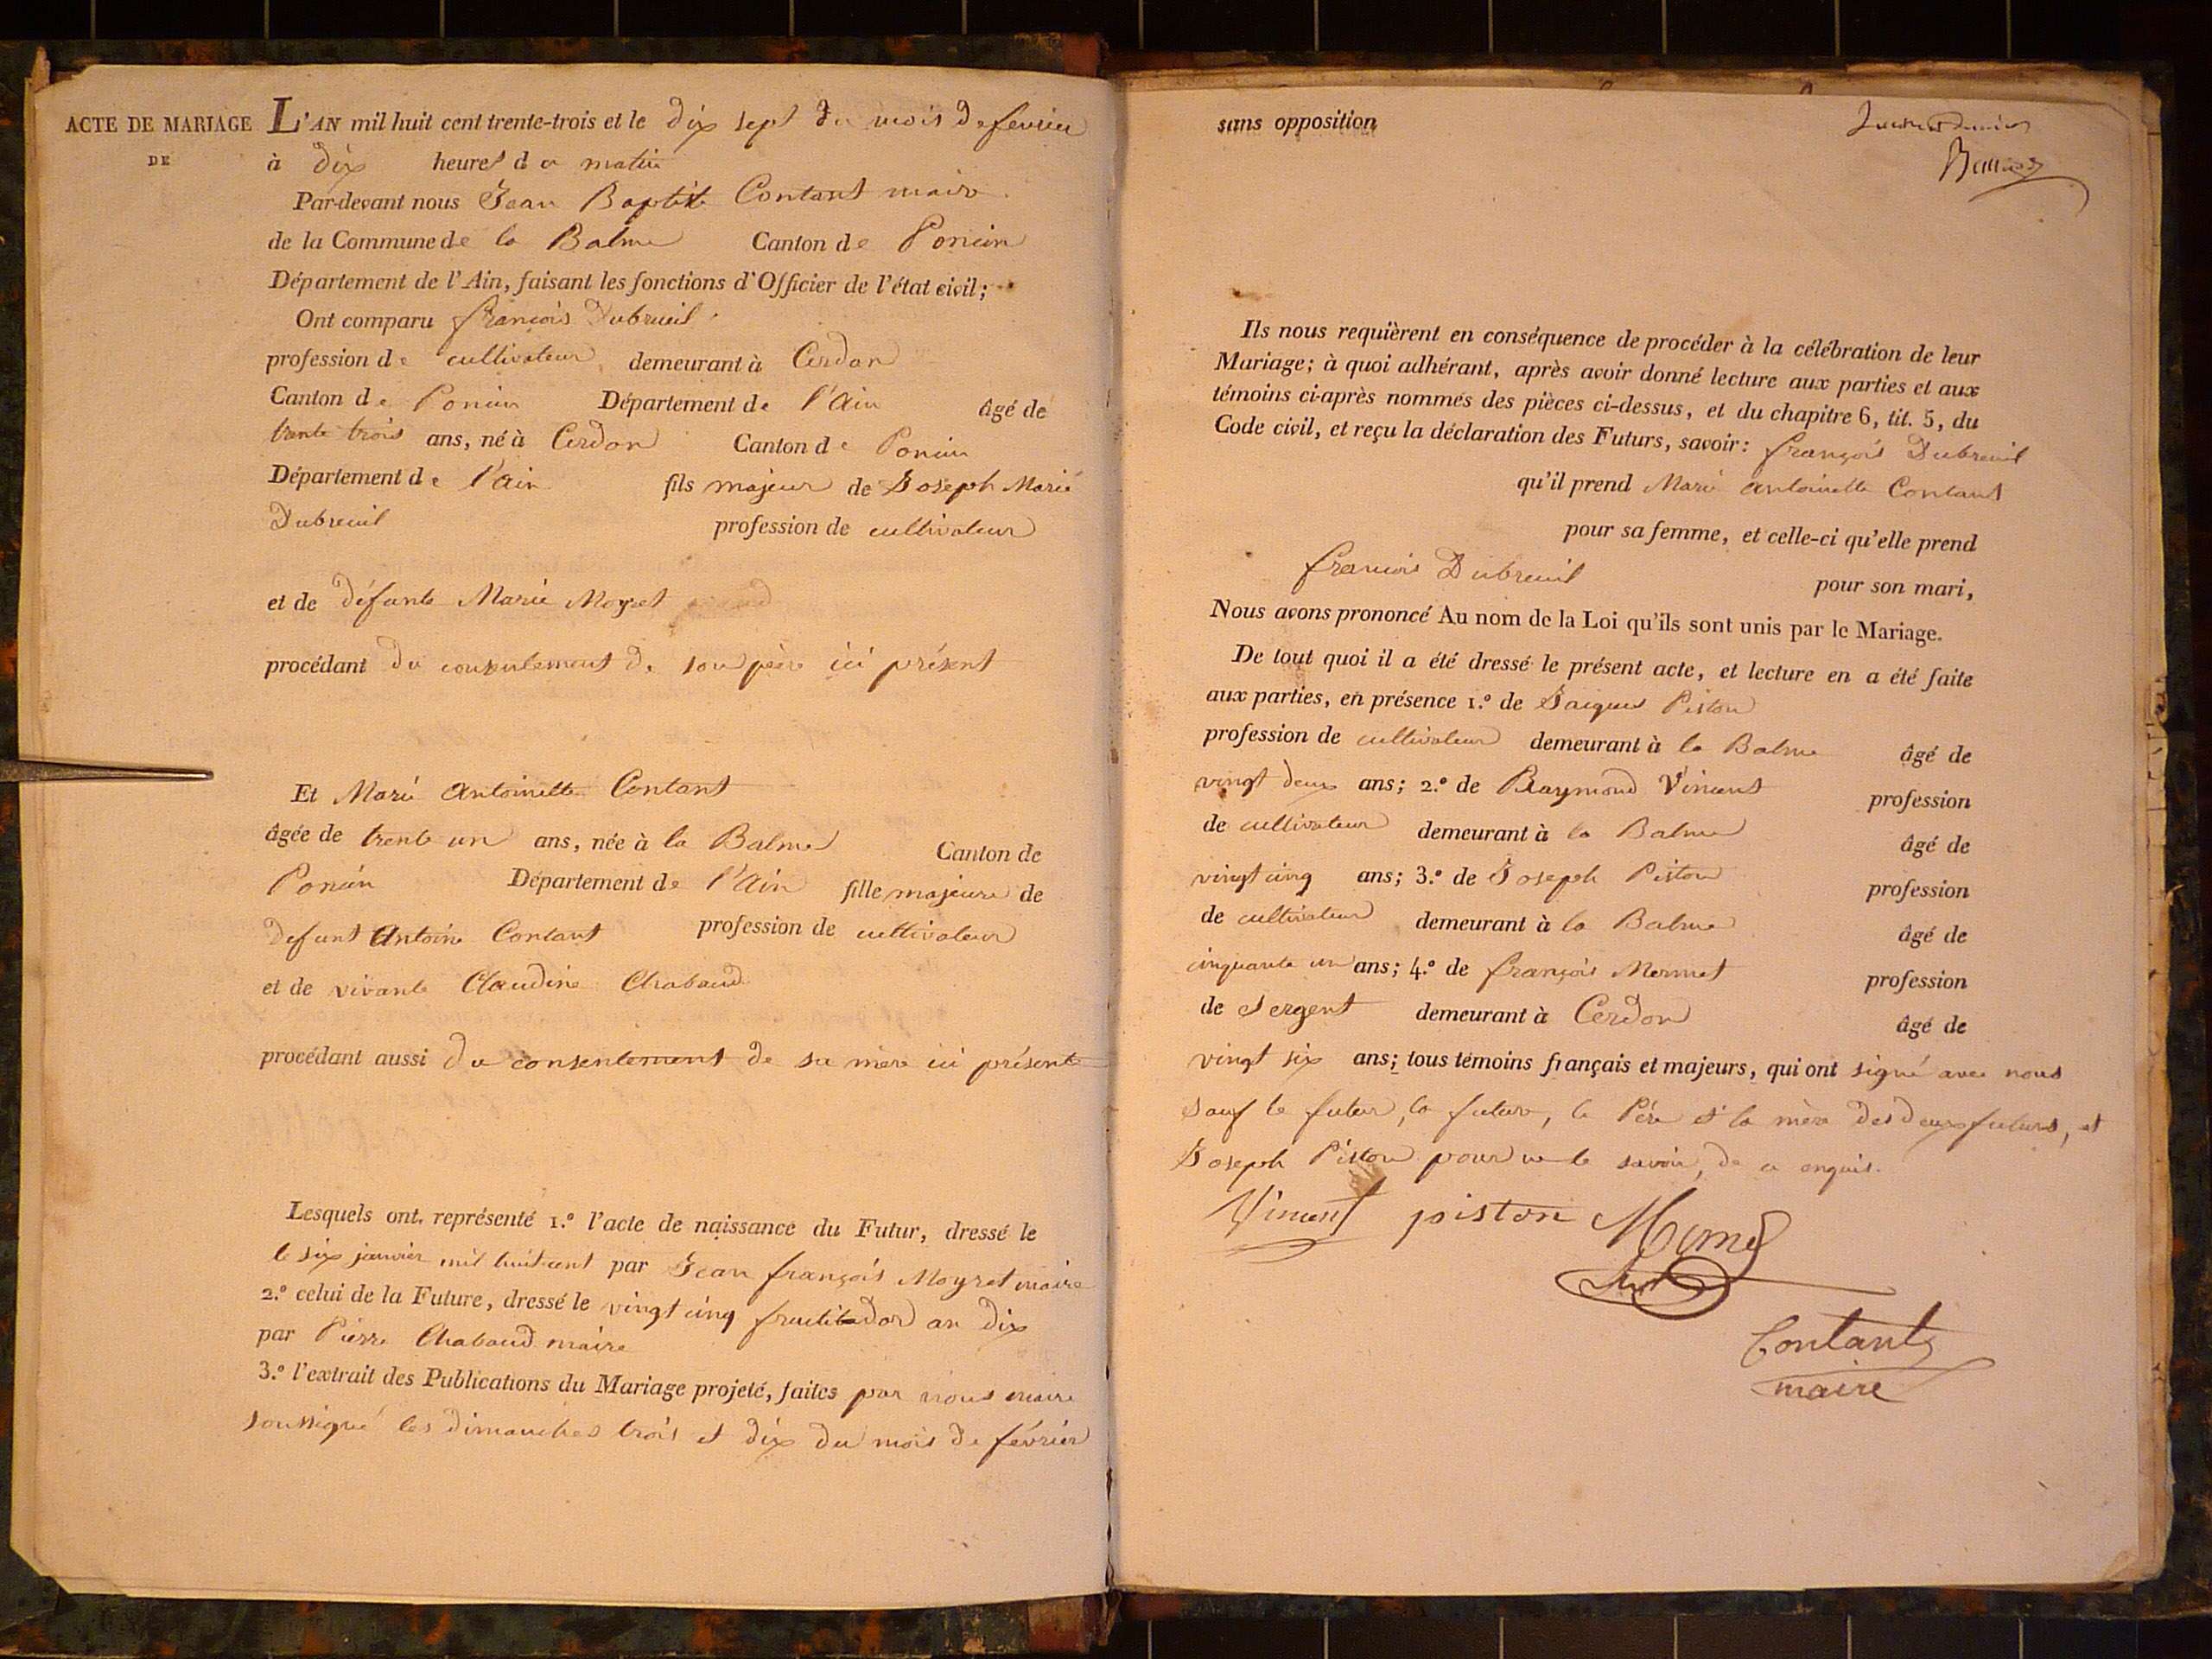 ACTE DE MARIAGE
DE
L'AN mil huit cent trente-trois et le dix sept du mois de fevrier
à dix heures du matin
Par-devant nous Jean Baptiste Contant maire
de la Commune de la Balme Canton de Poncin
Département de l'Ain, faisant les fonctions d'Officier de l'état civil;
Ont comparu françois Dubreuil
profession de cultivateur demeurant à Cerdon
Canton de Poncin Département de l'Ain âgé de
trente trois ans, né à Cerdon Canton de Poncin
Département de l'Ain fils majeur de Joseph Marie
Dubreuil profession de cultivateur
et de défunte Marie Moyret
procédant du consentement de son père ici présent
Et Marie Antoinette Contant
âgée de trente un ans, née à la Balme Canton de
Poncin Département de l'Ain fille majeure de
defunt Antoine Contant profession de cultivateur
et de vivante Claudine Chabaud
procédant aussi du consentement de sa mère ici présente
Lesquels ont représenté 1.º l'acte de naissance du Futur, dressé le
le six janvier mil huit cent par Jean françois Moyret maire
2.º celui de la Future, dressé le vingt cinq fructidor an dix
par Pierre Chabaud maire
3.º l'extrait des Publications du Mariage projeté, faites par nous maire
soussigné les dimanches trois et dix du mois de février
sans opposition
Ils nous requièrent en conséquence de procéder à la célébration de leur
Mariage; à quoi adhérant, après avoir donné lecture aux parties et aux
témoins ci-après nommés des pièces ci-dessus, et du chapitre 6, tit. 5, du
Code civil, et reçu la déclaration des Futurs, savoir: françois Dubreuil
qu'il prend Marie antoinette Contant
pour sa femme, et celle-ci qu'elle prend
francois Dubreuil pour son mari,
Nous avons prononcé Au nom de la Loi qu'ils sont unis par le Mariage.
De tout quoi il a été dressé le présent acte, et lecture en a été faite
aux parties, en présence 1.º de Jaques Piston
profession de cultivateur demeurant à la Balme âgé de
vingt deux ans; 2.º de Raymond Vincent profession
de cultivateur demeurant à la Balme âgé de
vingt cinq ans; 3.º de Joseph Piston profession
de cultivateur demeurant à la Balme âgé de
cinquante un ans; 4.º de françois Mermet profession
de Sergent demeurant à Cerdon âgé de
vingt six ans; tous témoins français et majeurs, qui ont signé avec nous
sauf le futur, la future, le Père et la mère des deux futurs, et
Joseph Piston pour ne le savoir, de ce enquis.
Vincent piston
Contant
maire